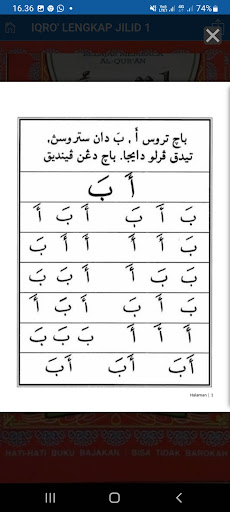 16.36 74%
IQRO' LENGKAP JILID 1
AL-QUR'AN
باچ تروس أ , بَ دان ستروسڽ,
تيدق ڤرلو دايجا. باچ دڠن ڤينديق
أَ بَ
بَ أَ بَ أَ بَ أَ
أَ أَ بَ أَ أَ بَ
أَ بَ بَ أَ بَ بَ
بَ أَ بَ أَ بَ أَ
أَ أَ أَ بَ بَ بَ
أَبَ أَبَ أَبَ
Halaman | 3
HATI-HATI BUKU BAJAKAN : BISA TIDAK BAROKAH